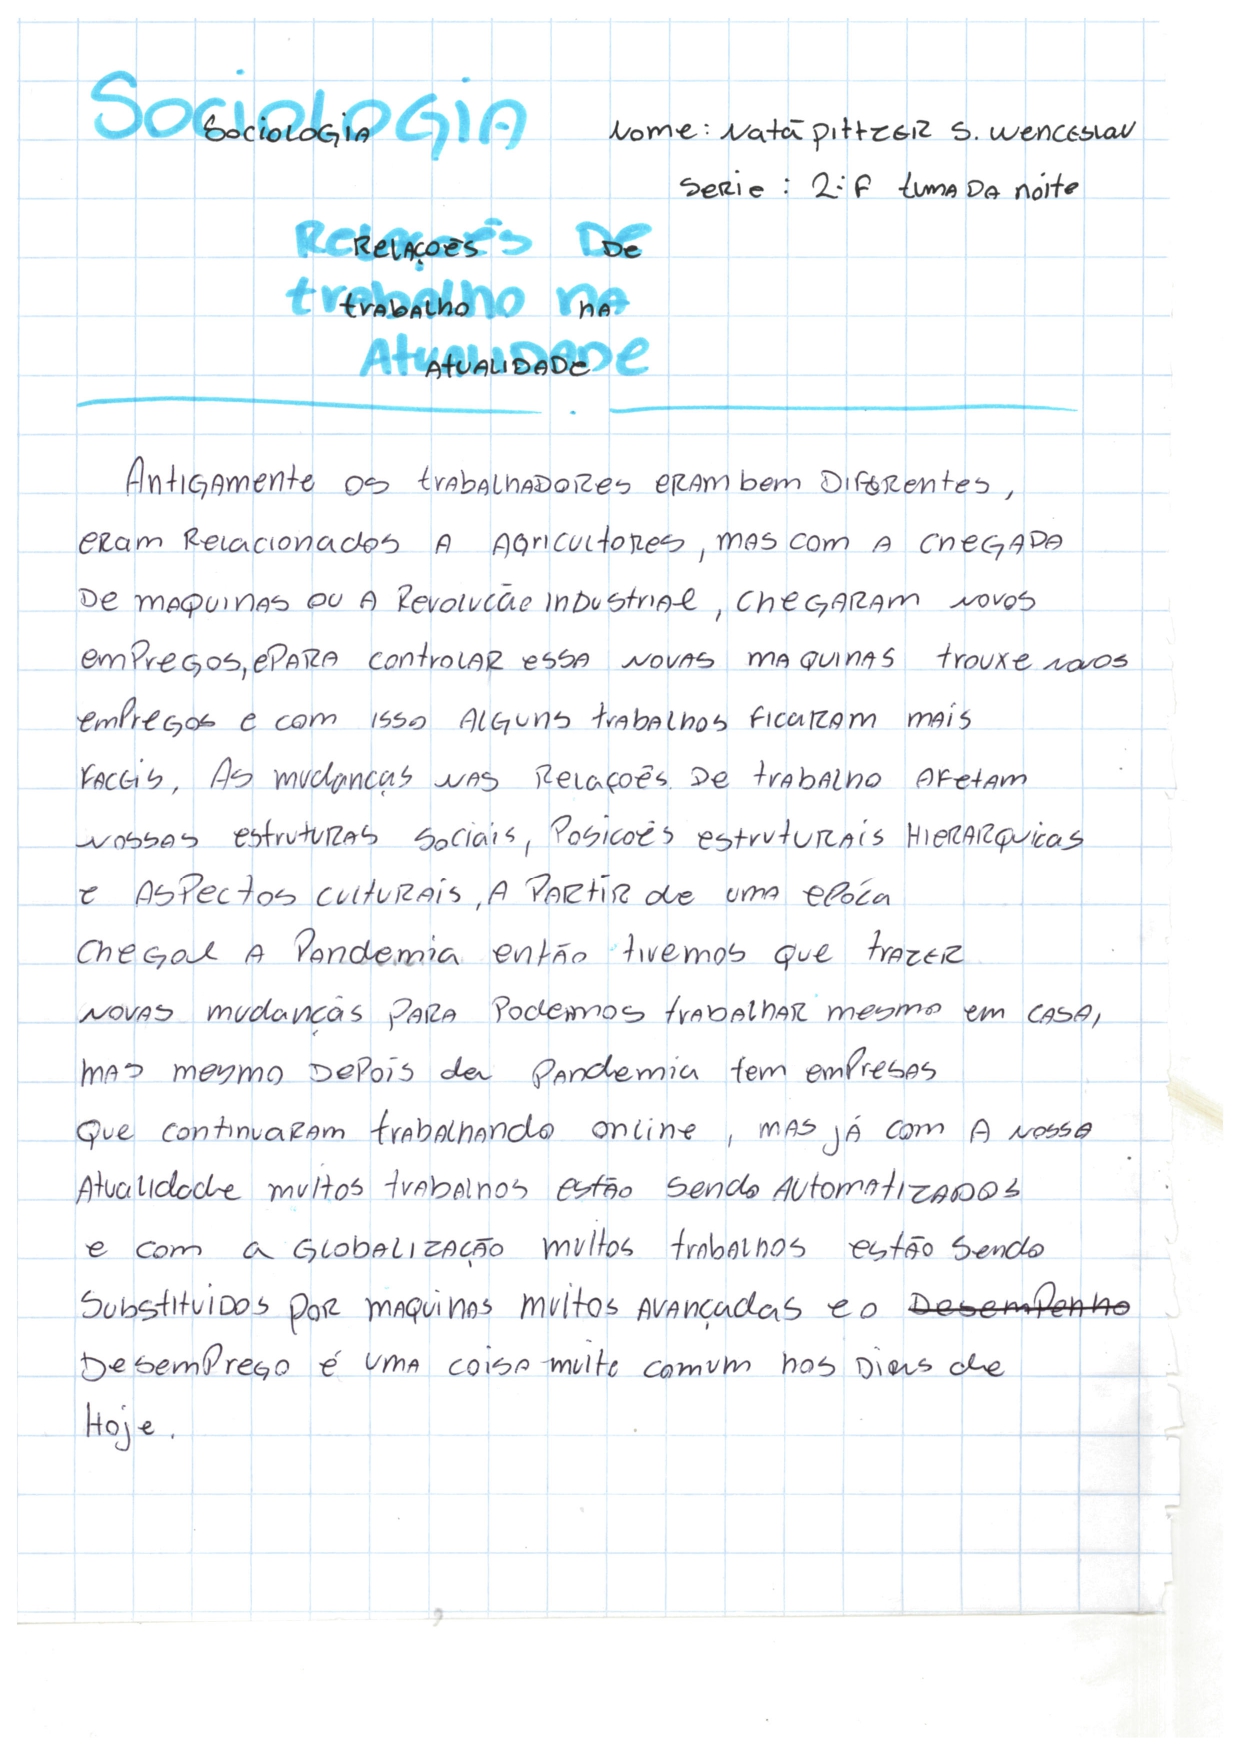 Sociologia
Sociologia
Nome: Natã Pittzer S. Wenceslau
Serie: 2ºF tuma da noite
Relações de
Relaçoes de
trabalho na
trabalho na
Atualidade
Atualidade
Antigamente os trabalhadores eram bem diferentes,
eram Relacionados a agricultores, mas com a chegada
de maquinas ou a Revolucão industrial, chegaram novos
empregos, e para controlar essa novas maquinas trouxe novos
empregos e com isso alguns trabalhos ficaram mais
faceis, As mudanças nas Relaçoês de trabalho afetam
nossas estruturas sociais, Posicoês estruturais Hierarquicas
e aspectos culturais, a partir de uma epóca
chegou a Pandemia então tivemos que trazer
novas mudanças para Podemos trabalhar mesmo em casa,
mas mesmo depois da Pandemia tem empresas
que continuaram trabalhando online, mas já com a nossa
Atualidade muitos trabalhos estão sendo automatizados
e com a Globalização muitos trabalhos estão sendo
substituidos por maquinas muitos avançadas e o Desempenho
Desemprego é uma coisa muito comum nos Dias de
Hoje.